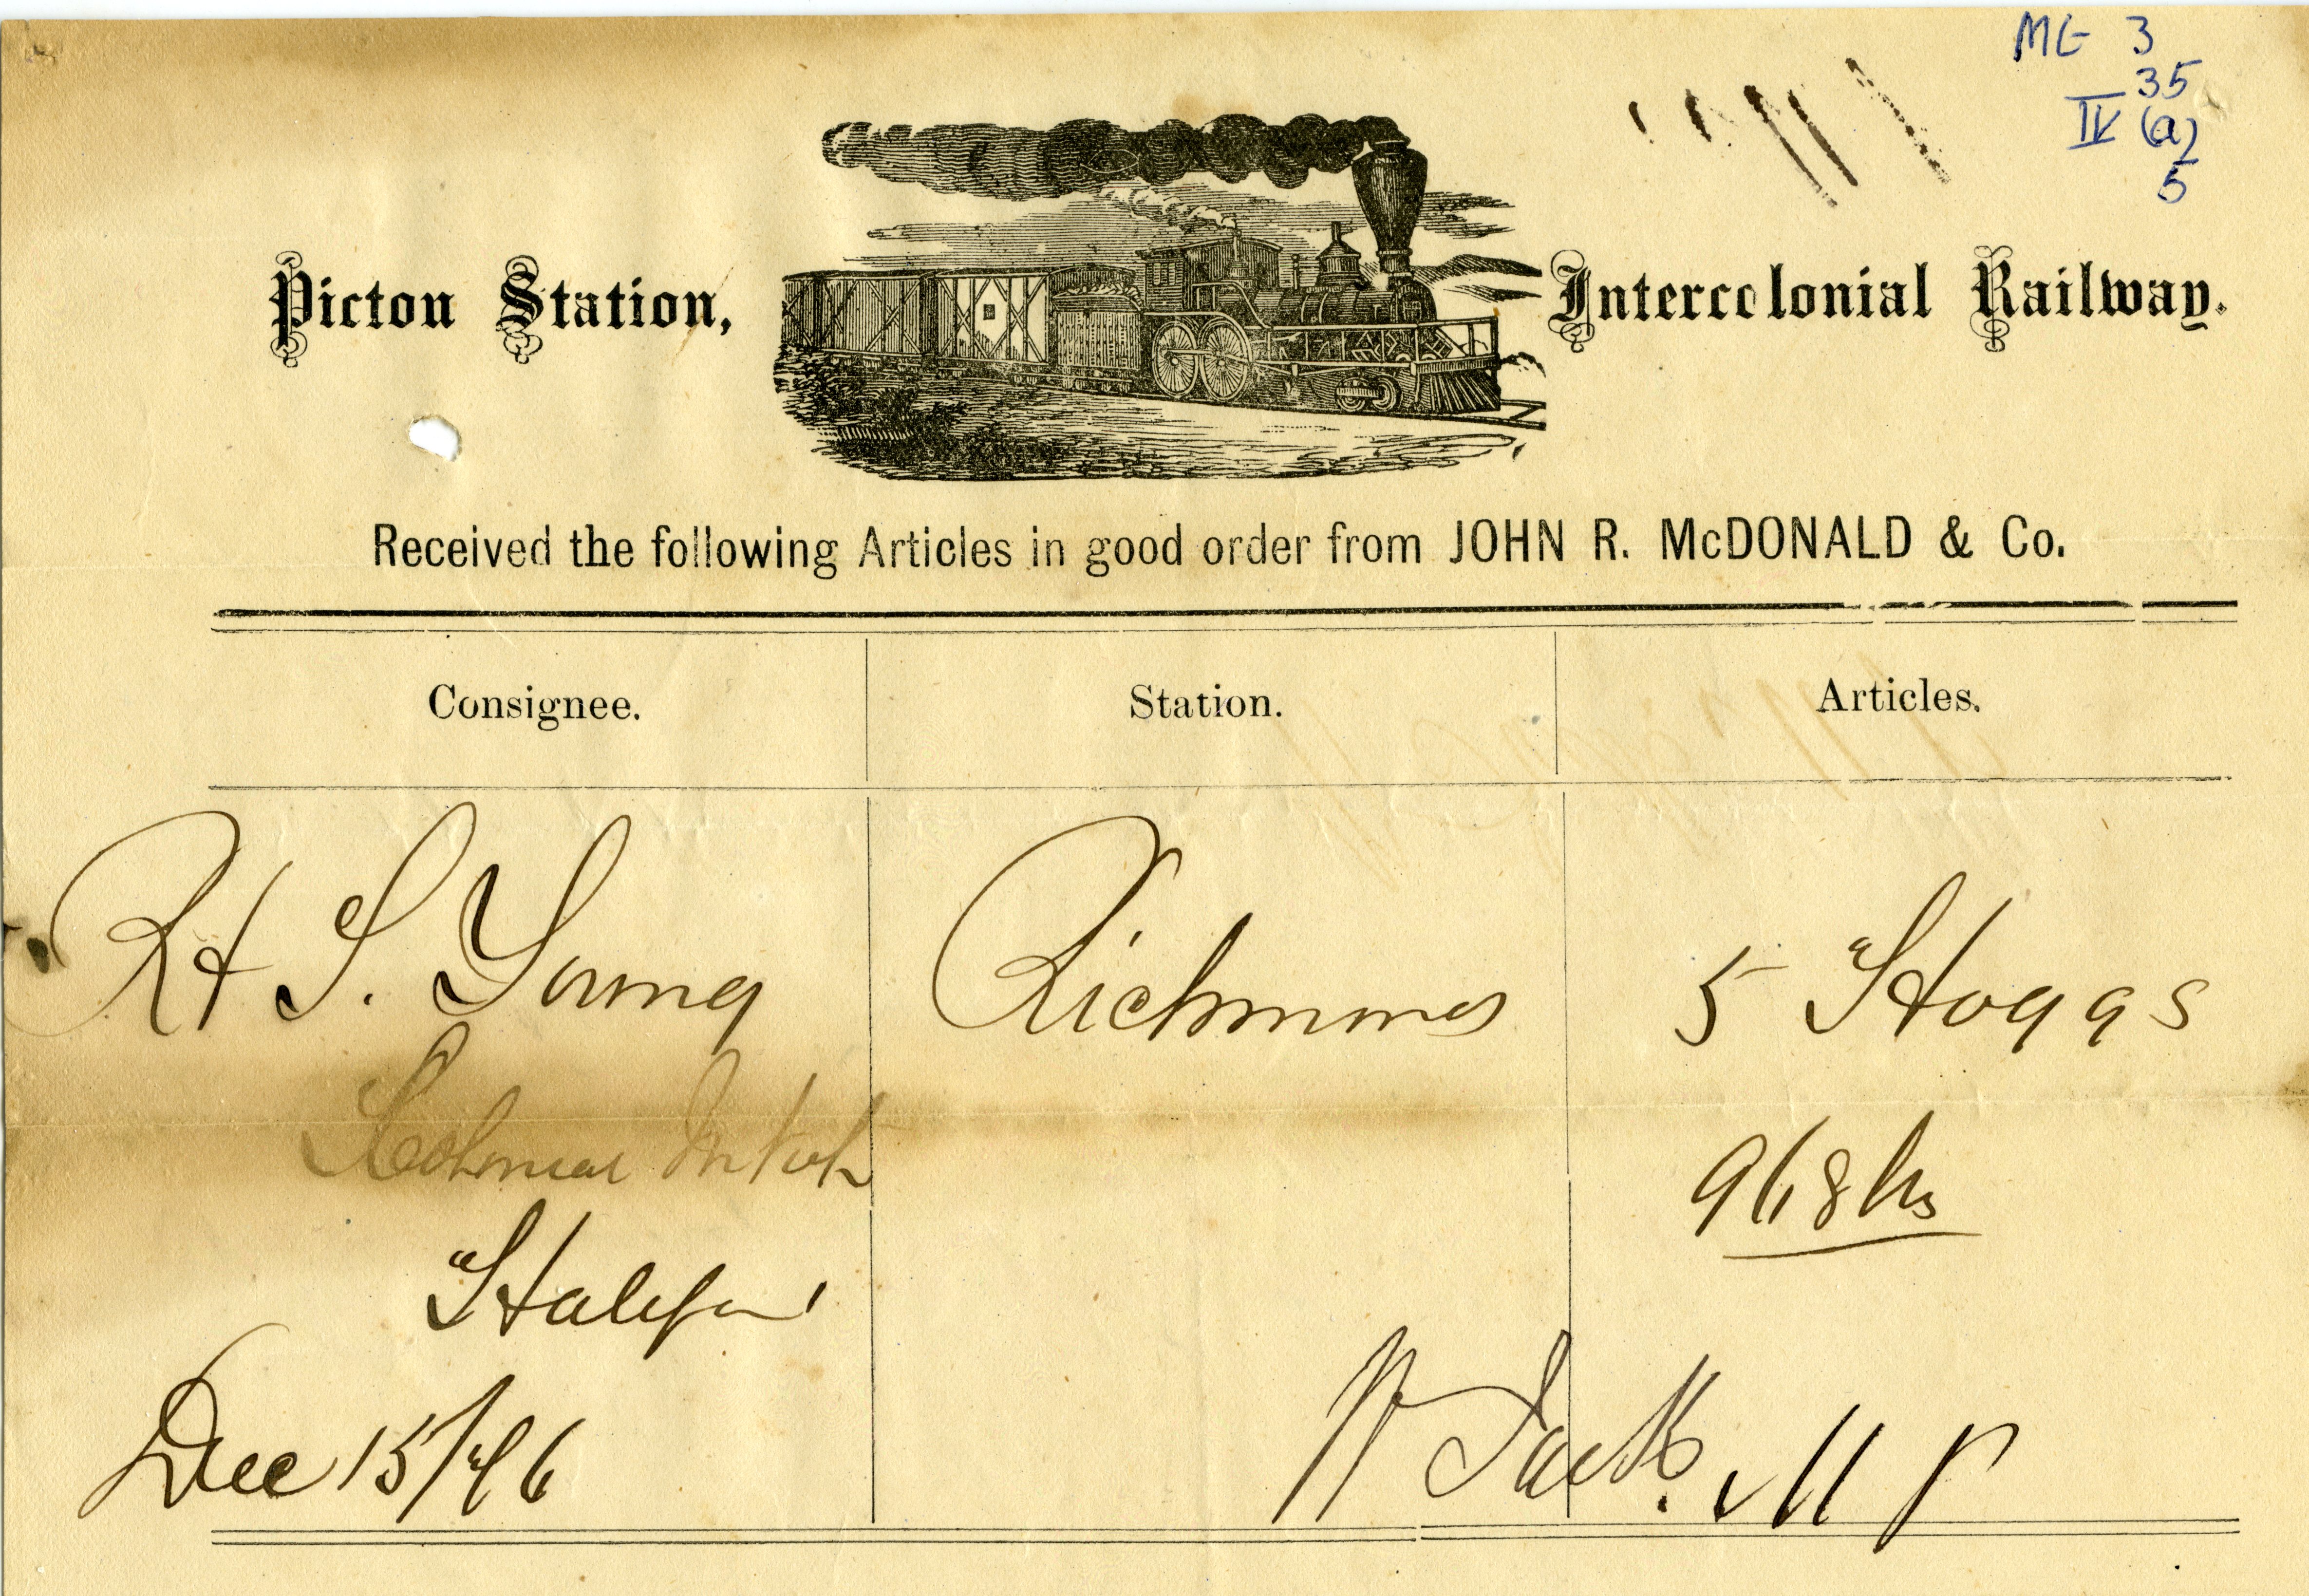 MG 3
35
IV (a)
5
Picton Station, Intercolonial Railway.
Received the following Articles in good order from JOHN R. McDONALD & Co.
Consignee. Station. Articles.
Rt S. Young Richmond 5 Hoggs
Colonial Market 968 lbs
Halifax
Dec 15/76 W Jack.